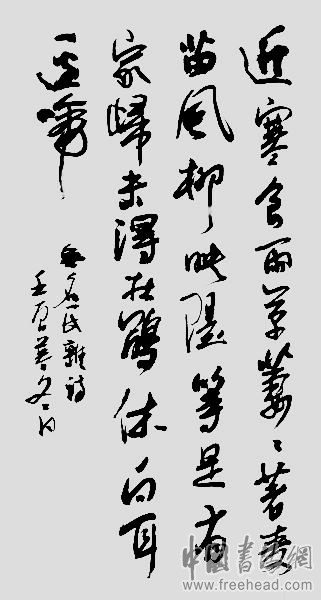 近寒食雨草萋〻著麥
苗風柳映隄等是有
家歸未得杜鵑休向耳
邊啼
無名氏雜詩
壬暮冬日
中國書網
www.freehead.com